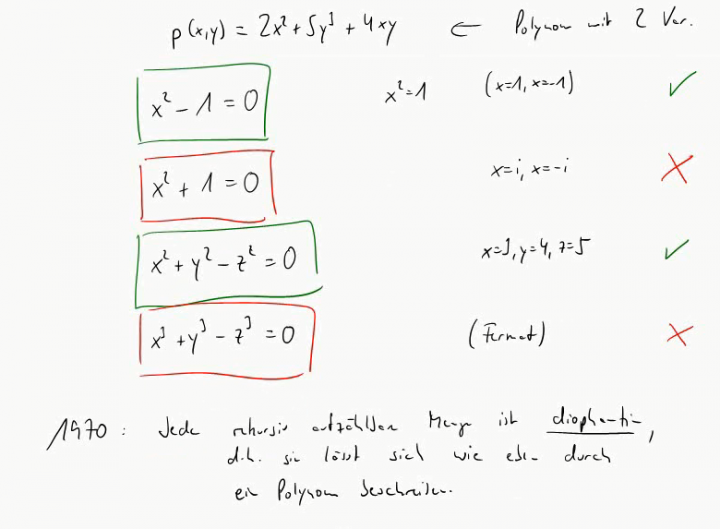 p(x,y) = 2x² + 5y³ + 4xy ← Polynom mit 2 Var.
x² - 1 = 0 x² = 1 (x=1, x=-1) ✓
x² + 1 = 0 x=i, x=-i ✗
x² + y² - z² = 0 x=3, y=4, z=5 ✓
x³ + y³ - z³ = 0 (Fermat) ✗
1970: Jede rekursiv aufzählbare Menge ist diophantin,
d.h. sie lässt sich wie eben durch
ein Polynom beschreiben.